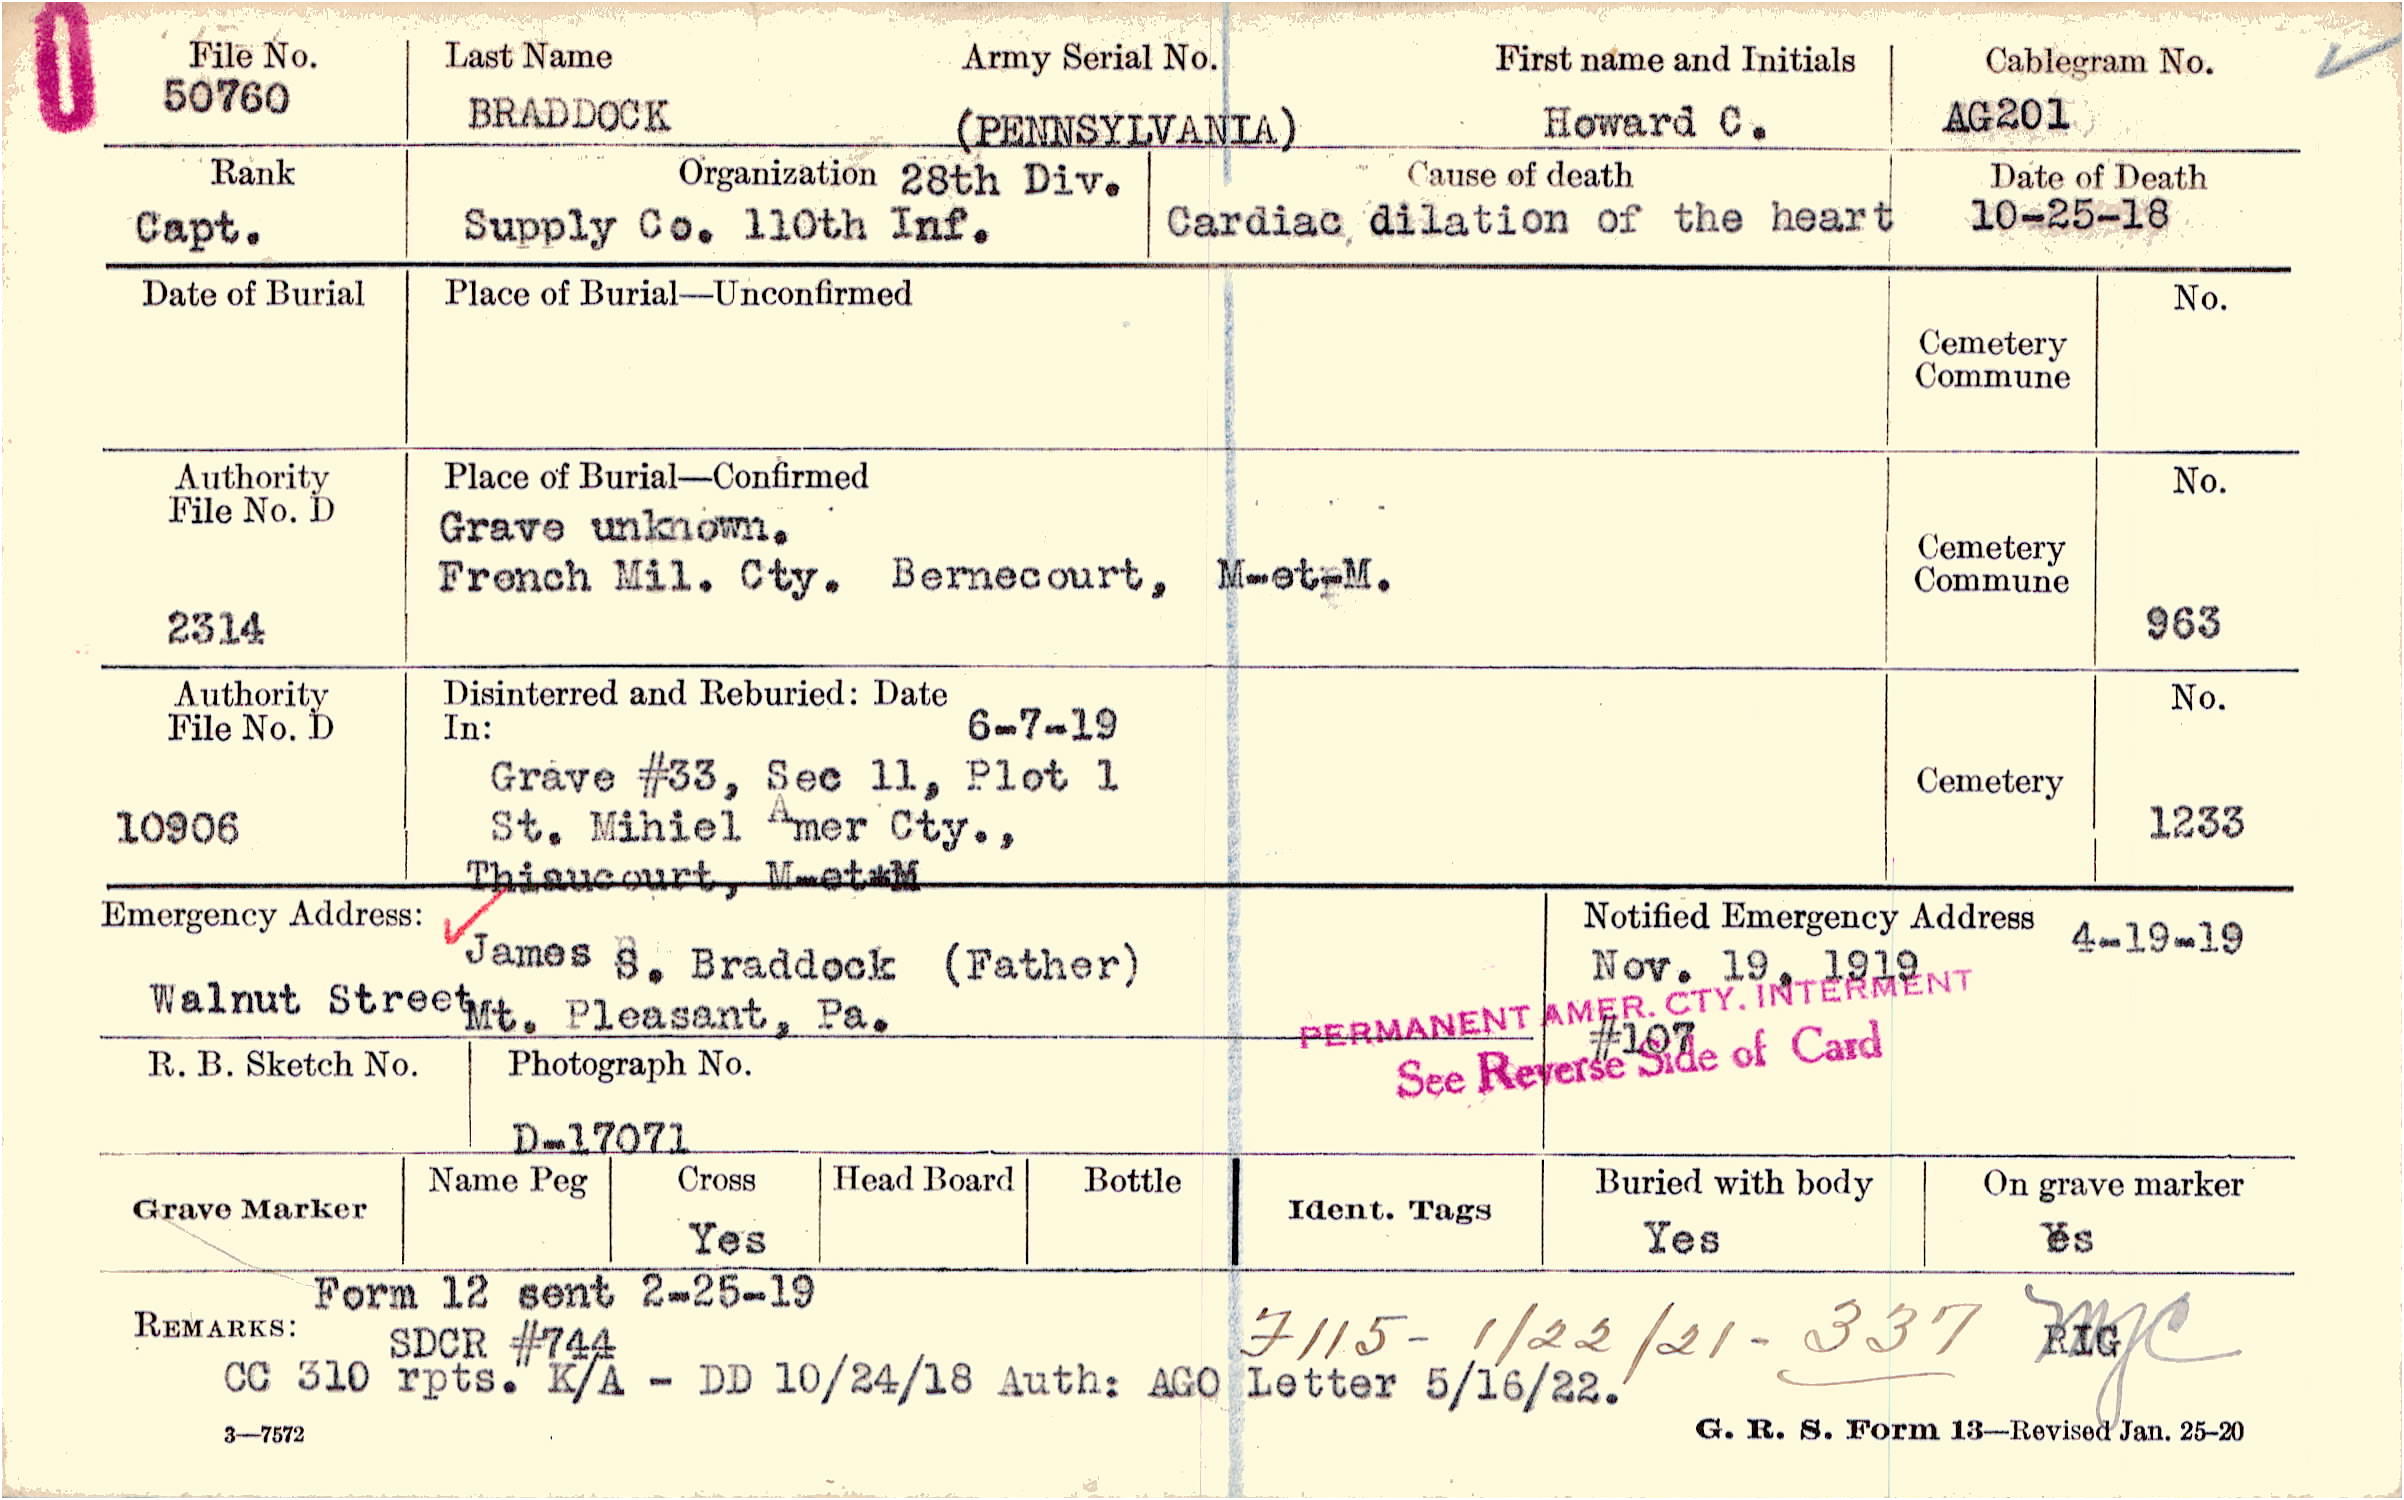 File No. Last Name Army Serial No. First name and Initials Cablegram No.
50760 BRADDOCK (PENNSYLVANIA) Howard C. AG201
Rank Organization 28th Div. Cause of death Date of Death
Capt. Supply Co. 110th Inf. Cardiac dilation of the heart 10-25-18
Date of Burial Place of Burial—Unconfirmed No.
Cemetery
Commune
Authority Place of Burial—Confirmed No.
File No. D
Grave unknown.
French Mil. Cty. Bernecourt, M-et-M. Cemetery
Commune
2314 963
Authority Disinterred and Reburied: Date No.
File No. D In: 6-7-19
Grave #33, Sec 11, Plot 1 Cemetery
10906 St. Mihiel Amer Cty., 1233
Thiaucourt, M-et*M
Emergency Address: Notified Emergency Address 4-19-19
James S. Braddock (Father) Nov. 19, 1919
Walnut Street Mt. Pleasant, Pa.
PERMANENT AMER. CTY. INTERMENT
#107
See Reverse Side of Card
R. B. Sketch No. Photograph No.
D-17071
Grave Marker Name Peg Cross Head Board Bottle Ident. Tags Buried with body On grave marker
Yes Yes Yes
Form 12 sent 2-25-19
REMARKS: SDCR #744 7115 - 1/22/21 - 337 RIG
CC 310 rpts. K/A - DD 10/24/18 Auth: AGO Letter 5/16/22.
3—7572 G. R. S. Form 13—Revised Jan. 25-20